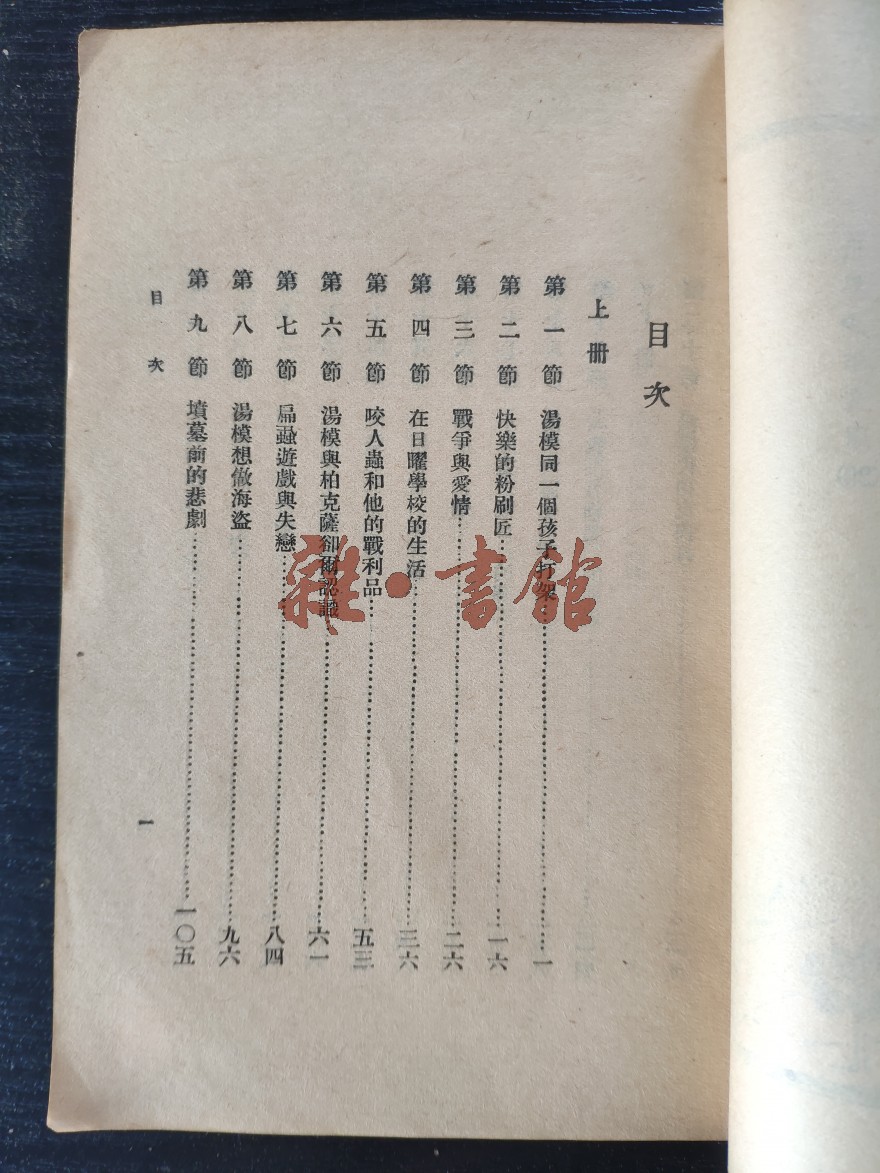 目次
上册
第一節 湯模同一個孩子打架…………一
第二節 快樂的粉刷匠…………一六
第三節 戰爭與愛情…………二六
第四節 在日曜學校的生活…………三六
第五節 咬人蟲和他的戰利品…………五三
第六節 湯模與柏克薩卻爾認識…………六一
第七節 扁蝨遊戲與失戀…………八四
第八節 湯模想做海盜…………九六
第九節 墳墓前的悲劇…………一〇五
目次
一
雜·書館